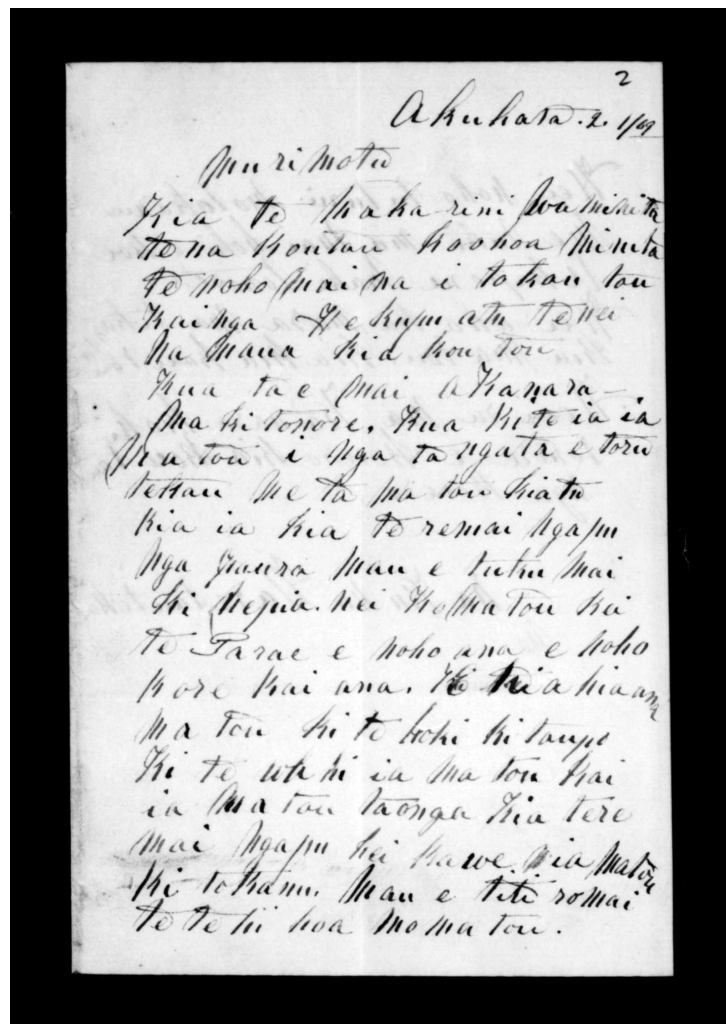 2
Akuhata. 2. 1/69
Murimotu
Kia te Makarini ma Minita
tena koutou kaohoa Minita
te noho mai na i to koutou
Kainga He kupu atu tenei
na maua kia koutou
Kua tae mai a Kanara
Makitonore. Kua kiteia ia
Matou i nga tangata e toru
tekau me ta matou kiatu
kia ia kia teremai ngapu
nga paura mau e tuku mai
ki Nepia. nei ko matou kai
te Parae e noho ana e noho
kore kai ana. He hiahia ana
matou ki te hoki ki taupo
Ki te wehi ia matou kai
ia matou taonga Kia tere
mai ngapu hei kawe ia matou
ki tokanu. Mau e titiromai
te tehi hoa mo matou.